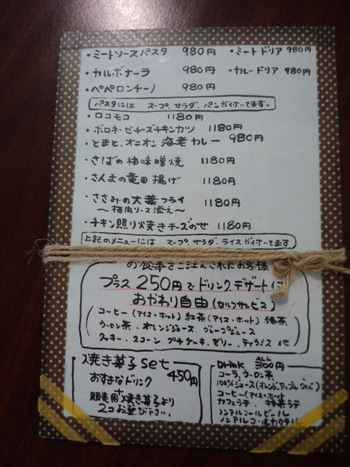 ・ミートソースパスタ 980円 ・ミートドリア 980円
・カルボナーラ 980円 ・カレードリア 980円
・ペペロンチーノ 980円
パスタには スープ、サラダ、パンが付いてます。
・ロコモコ 1180円
・ボロネーゼチーズチキンカツ 1180円
・とまと、オニオン 海老カレー 980円
・さばの梅味噌焼 1180円
・さんまの竜田揚げ 1180円
・ささみの大葉フライ 1180円
～梅肉ソース添え～
・チキン照り焼きチーズのせ 1180円
上記のメニューには スープ、サラダ、ライスが付いてます
お食事をご注文されたお客様
プラス250円でドリンク、デザート付
おかわり自由(セルフサービス)
コーヒー(アイス・ホット) 紅茶(アイス・ホット) 緑茶
ウーロン茶・オレンジジュース グレープジュース
クッキー、スコーン プチケーキ、ゼリー、ティラミス 他
焼き菓子set 450円
おすきなドリンク
販売用焼き菓子より
2コお選び下さい。
Drink 各300円
コーラ、ウーロン茶
100%ジュース(オレンジ、アップル、グレープ)
コーヒー(アイス・ホット)
カフェラテ
ノンアルコールビール
ノンアルコールカクテル